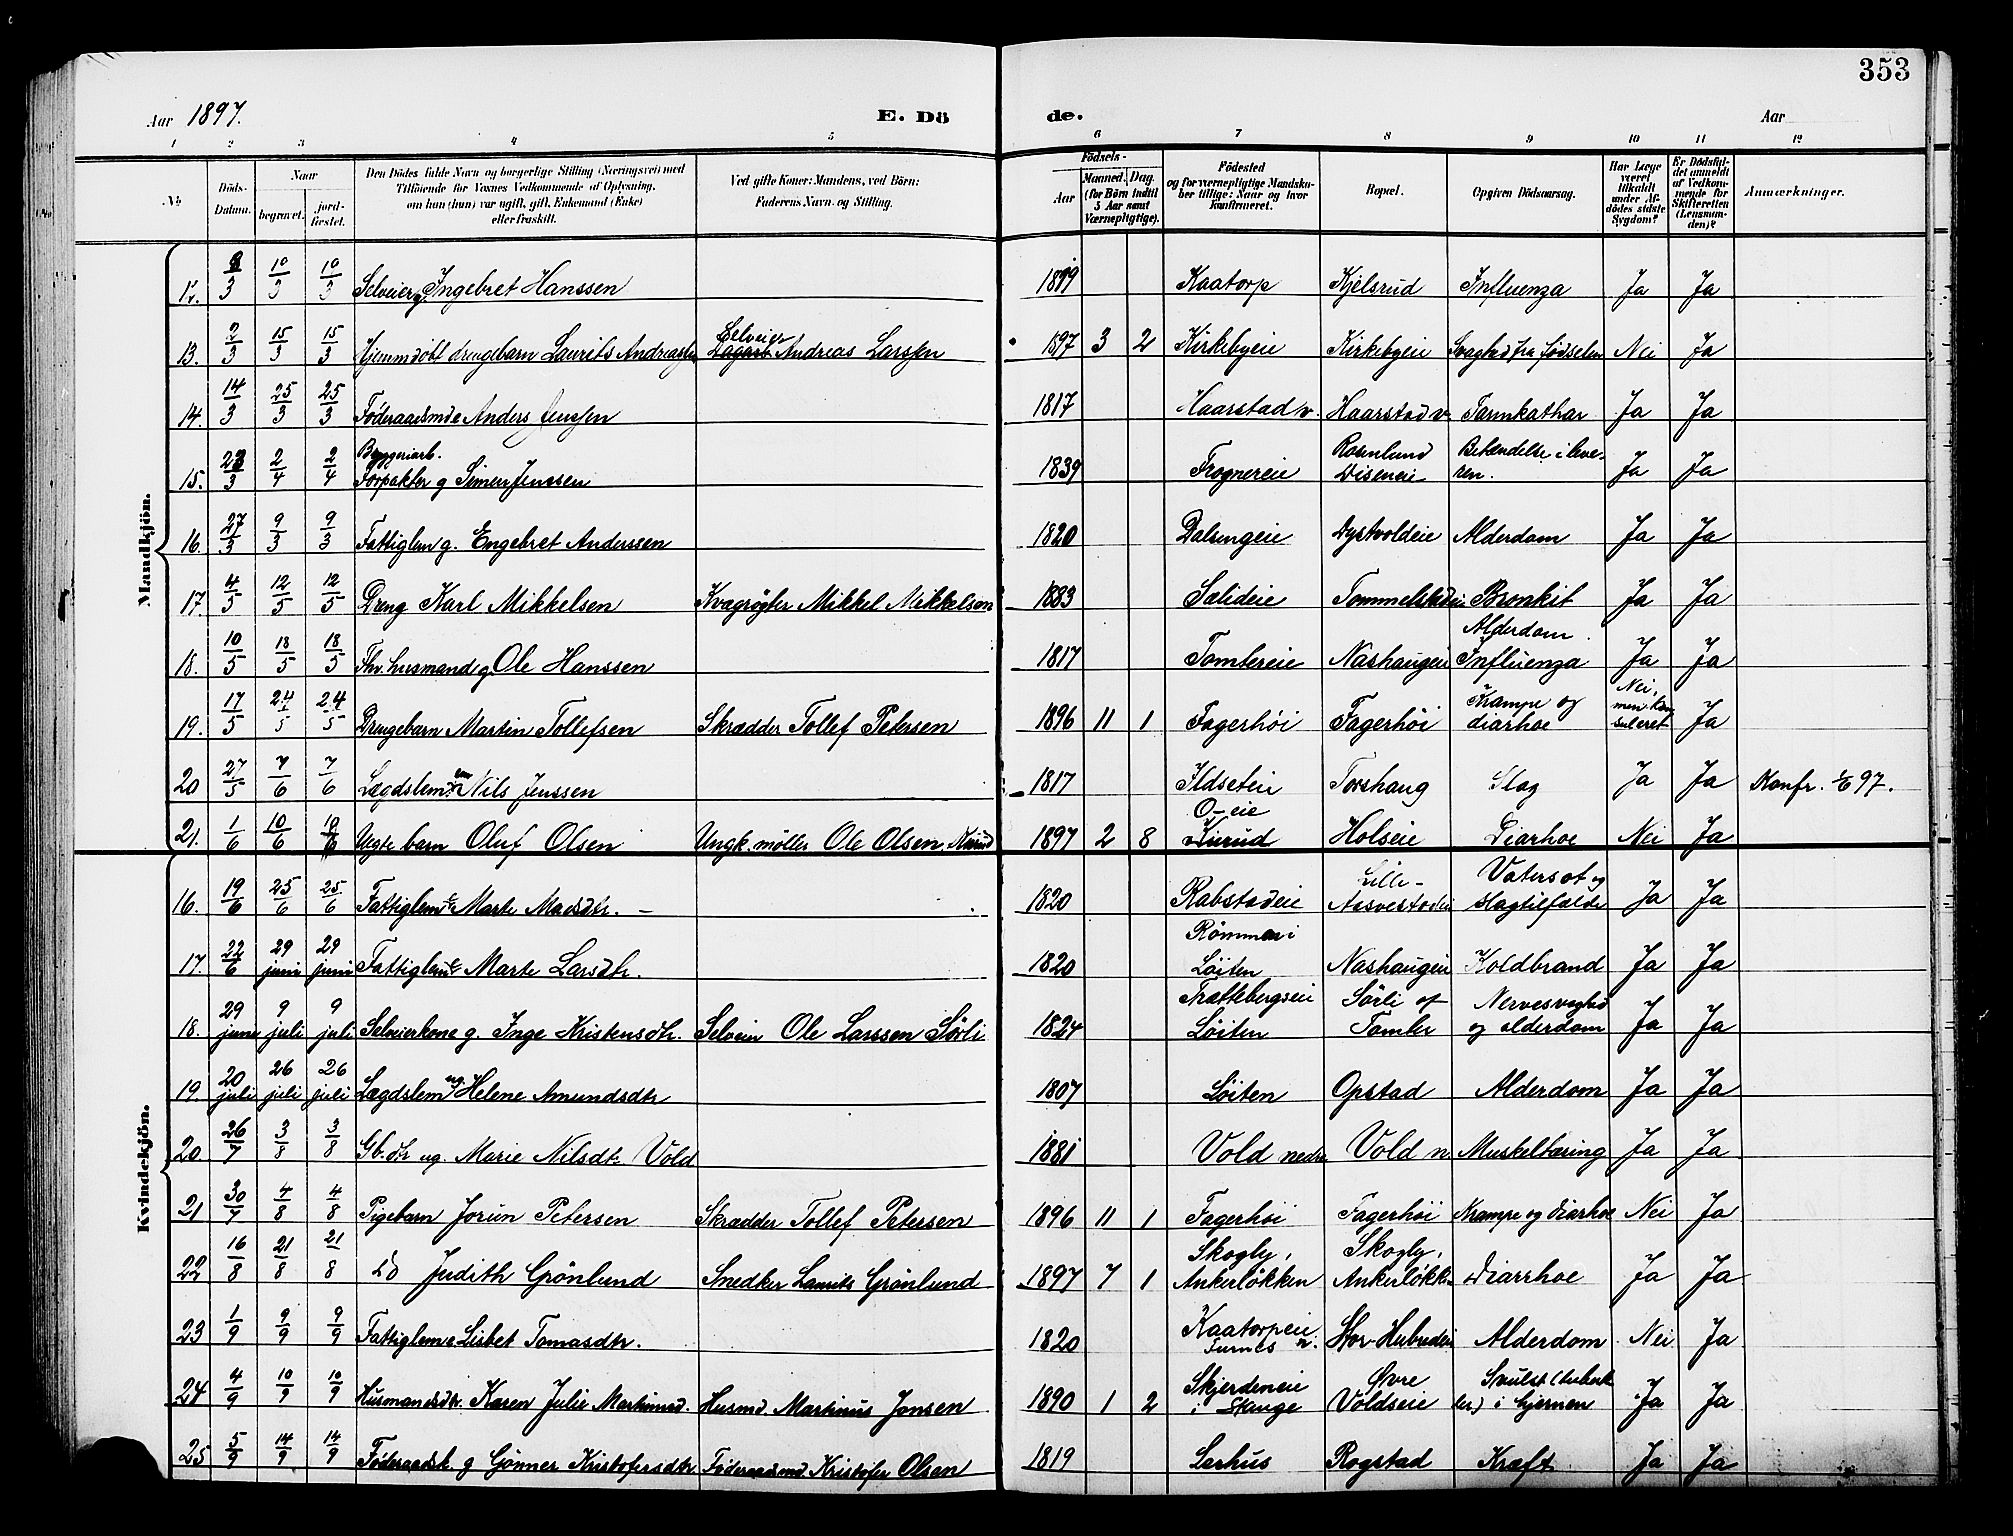 353
Aar 1897. E. Dö de. Aar
1 2 3 4 5 6 7 8 9 10 11 12
No
Döds-Datum.
Naar
begravet. jordfæstet.
Den Dödes fulde Navn og borgerlige Stilling (Næringsvei) med Tilföiende for Voxnes Vedkommende af Oplysning, om han (hun) var ugift, gift, Enkemand (Enke) eller fraskilt.
Ved gifte Koner: Mandens, ved Börn: Faderens Navn og Stilling.
Födsels-
Aar Maaned. Dag.
(for Börn indtil 5 Aar samt Værnepligtige).
Födested og for værnepligtige Mandskaber tillige: Naar og hvor konfirmeret.
Bopæl.
Opgiven Dödsaarsag.
Har Læge været tilkaldt under Afdödes sidste Sygdom?
Er Dödsfaldet anmeldt af Vedkommende for Skifteretten (Lensmanden)?
Anmærkninger.
Mandkjön.
12. 8/3 10/3 10/3 Selveier g. Ingebret Hanssen Kaatorp Kjelsrud Influenza Ja Ja
13. 2/3 15/3 15/3 Hjemmdöbt drengebarn Laurits Andreas Selveier Andreas Larsen 1897 3 2 Kirkebyeie Kirkebyeie Svaghed fra födselen Nei Ja
14. 14/3 25/3 25/3 Föderaadsmd Anders Jensen 1817 Haarstad v. Haarstad v. Tarmkathar Ja Ja
15. 23/3 2/4 2/4 Bryggeriarb. Forpakter g Simen Jenssen 1839 Frognereie Rosenlund Diseneie Betændelse i leveren. Ja Ja
16. 27/3 9/3 9/3 Fattiglem g. Engebret Anderssen 1820 Dalsengeie Dystvoldeie Alderdom Ja Ja
17. 4/5 12/5 12/5 Dreng Karl Mikkelsen Kvægrögter Mikkel Mikkelsen 1883 Sælideie Tommelstadeie Bronkit Ja Ja
18. 10/5 18/5 18/5 Fhv. husmand g. Ole Hanssen 1817 Tomtereie Nashaugeie Alderdom Influenza Ja Ja
19. 17/5 24/5 24/5 Drengebarn Martin Tollefsen Skrædder Tollef Petersen 1896 11 1 Fagerhöi Fagerhöi Krampe og diarhoe Nei, men konsuleret Ja
20 27/5 7/6 7/6 Lægdslem em Nils Jenssen 1817 Ildseteie Torshaug Slag Ja Ja Konfr. 97.
21. 1/6 10/6 10/6 Uegte barn Oluf Olsen Ungk. möller Ole Olsen, Kurud 1897 2 8 O-eie Kurud Holseie Diarhoe Nei Ja
Kvindekjön.
16. 19/6 25/6 25/6 Fattiglem e Marte Madsdtr. 1820 Rabstadeie Lille-Aasvestadeie Vatersot og slagtilfælde Ja Ja
17. 22/6 29 juni 29 juni Fattiglem e Marte Larsdtr. 1820 Römmen i Löiten Nashaugeie Koldbrand Ja Ja
18. 29 juni 9 juli 9 juli Selveierkone g. Inge Kristensdtr. Selveier Ole Larssen Sörli 1824 Trættebergseie Löiten Sörli af Tomter Nervesvaghed og alderdom Ja Ja
19. 20 juli 26 juli 26 juli Lægdslem ug. Helene Amundsdtr 1807 Löiten Opstad Alderdom Ja Ja
20. 26/7 3/8 3/8 Gb. dtr ug. Marie Nilsdtr. Vold 1881 Vold nedre Vold n. Muskeltæring Ja Ja
21 30/7 4/8 4/8 Pigebarn Jorun Petersen Skrædder Tollef Petersen 1896 11 1 Fagerhöi Fagerhöi Krampe og diarhoe Nei Ja
22 16/8 21/8 21/8 Do Judith Grönlund Snedker Laurits Grönlund 1897 7 1 Skogly, Ankerlökken Skogly, Ankerlökken Diarrhoe Ja Ja
23 1/9 9/9 9/9 Fattiglem e Lisbet Tomasdtr. 1820 Kaatorpeie Furnes Stor-Hubredeie Alderdom Nei Ja
24 4/9 10/9 10/9 Husmandsdtr. Karen Julie Martinusd. Husmd. Martinus Jonsen 1890 1 2 Skjerdeneie i Stange Övre Voldseie Svulst (tuberkler) i hjernen Ja Ja
25 5/9 14/9 14/9 Föderaadsk. g Gönner Kristofersdtr Föderaadsmd Kristofer Olsen 1819 Serhus Rogstad Kræft Ja Ja